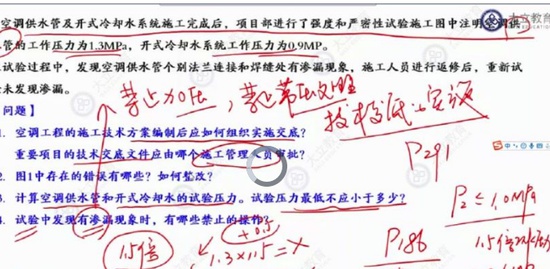 空调供水管及开式冷却水系统施工完成后，项目部进行了强度和严密性试验施工图中注明空调供
管的工作压力为1.3MPa，开式冷却水系统工作压力为0.9MP。
试验过程中，发现空调供水管个别法兰连接和焊缝处有渗漏现象，施工人员进行返修后，重新试
未发现渗漏。
禁止加压，禁止带压处理
技术交底
问题】
空调工程的施工技术方案编制后应如何组织实施交底？
重要项目的技术交底文件应由哪个施工管理人员审批？
P291
2. 图1中存在的错误有哪些？如何整改？
3. 计算空调供水管和开式冷却水的试验压力。试验压力最低不应小于多少？
P≤1.0MPa
4. 试验中发现有渗漏现象时，有哪些禁止的操
+0.5
1.5倍
1.3×1.5=X
P186
1.5倍
大立教育